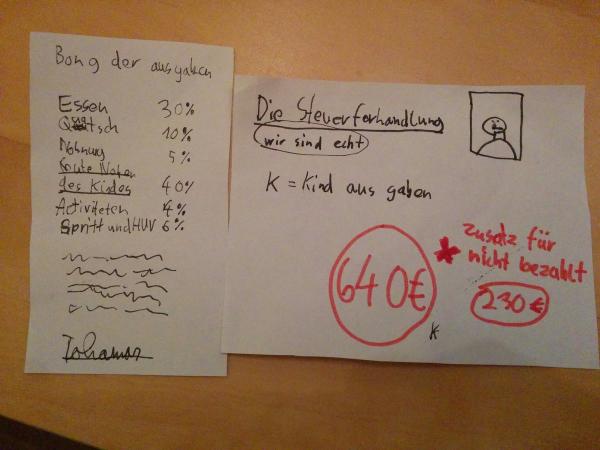 Bong der ausgaben
Essen 30%
Quatsch 10%
Wohnung 5%
Gute Noten
des Kindes 40%
Activiteten 4%
Spritt und HUV 6%
Die Steuerforhandlung
wir sind echt
K = Kind aus gaben
640€
K
* Zusatz für
nicht bezahlt
230€